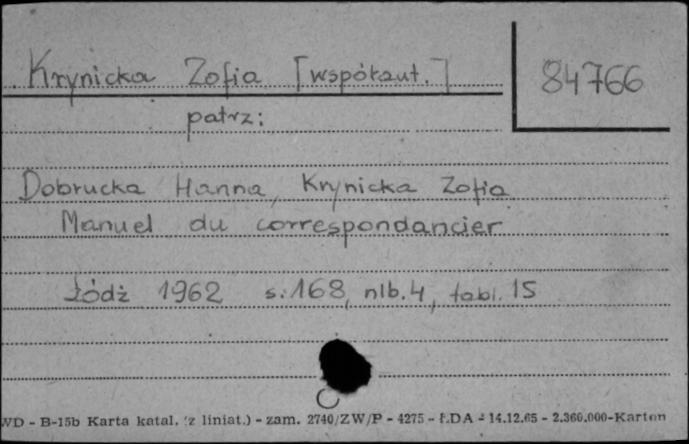 Krynicka Zofia [współaut.]
84766
patrz:
Dobrucka Hanna, Krynicka Zofia
Manuel du correspondancier
Łódź 1962 s. 168, nlb. 4, tabl. 15
WD - B-15b Karta katal. (z liniat.) - zam. 2740/ZW/P - 4275 - 14.12.65 - 2.360.000 - Karton